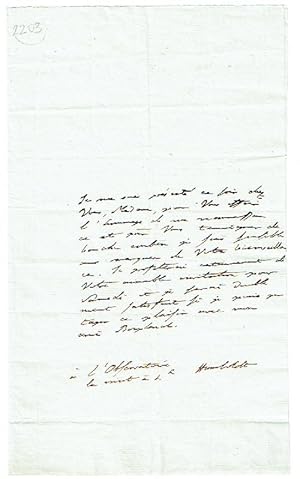 2203
Je me suis présenté ce soir chez
Vous, Madame, pour Vous offrir
l'hommage de ma reconnoissan
ce et pour Vous temoigner de
bouche combien je suis sensible
aux marques de Votre bienveillan
ce. Je profiterai certainement de
Votre aimable invitation pour
Samedi et je serai double
ment satisfait si je puis par
tager ce plaisir avec mon
ami Bonpland.
à l'Observatoire Humboldt